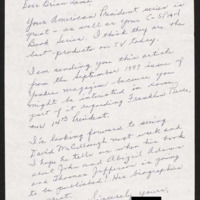 Dear Brian Lamb,
Your American President series is
great - as well as your C-SPAN
Book Series. I think they are the
best products on TV today.
I am sending you this article
from the September 1999 issue of
Yankee magazine because you
might be interested in some
part of it regarding Franklin Pierce,
our 14th President.
I'm looking forward to seeing
David McCullough next week and
I hope he tells us when his book
about John and Abigail Adams
and Thomas Jefferson is going
to be published! His biographies
Sincerely yours,